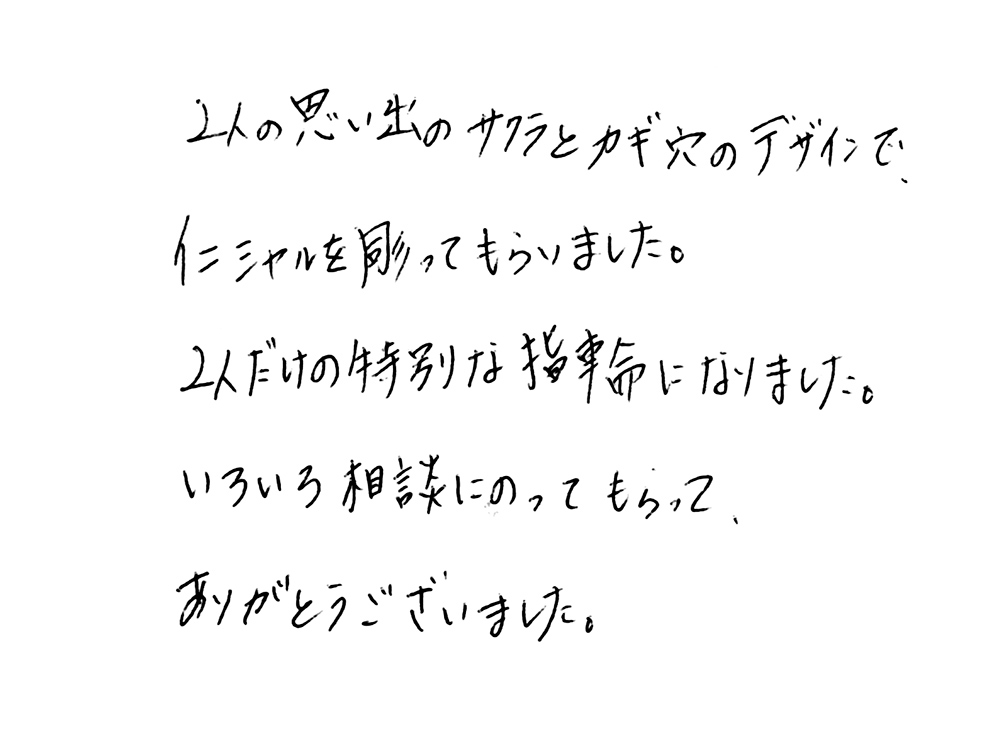 2人の思い出のサクラとカギ穴のデザインで、
イニシャルを彫ってもらいました。
2人だけの特別な指輪になりました。
いろいろ相談にのってもらって、
ありがとうございました。